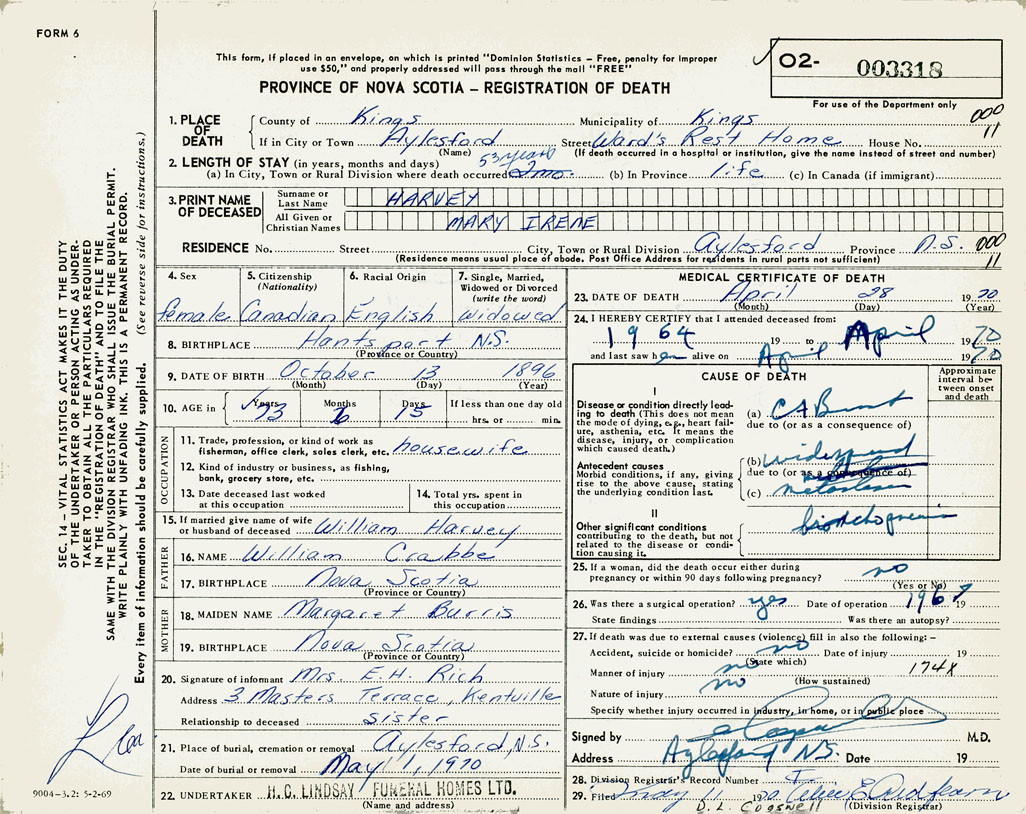 FORM 6
This form, if placed in an envelope, on which is printed "Dominion Statistics – Free, penalty for improper
use $50," and properly addressed will pass through the mail "FREE"
PROVINCE OF NOVA SCOTIA – REGISTRATION OF DEATH
O2- 003318
For use of the Department only
1. PLACE OF DEATH County of Kings Municipality of Kings 000
If in City or Town Aylesford Street Ward's Rest Home House No. 11
(Name) (If death occurred in a hospital or institution, give the name instead of street and number)
2. LENGTH OF STAY (in years, months and days) 53 years
(a) In City, Town or Rural Division where death occurred 2 mo. (b) In Province life (c) In Canada (if immigrant)
3. PRINT NAME OF DECEASED
Surname or Last Name HARVEY
All Given or Christian Names MARY IRENE
RESIDENCE No. Street City, Town or Rural Division Aylesford Province N.S. 000
(Residence means usual place of abode. Post Office Address for residents in rural parts not sufficient) 11
4. Sex female
5. Citizenship (Nationality) Canadian
6. Racial Origin English
7. Single, Married, Widowed or Divorced (write the word) widowed
8. BIRTHPLACE Hantsport N.S.
(Province or Country)
9. DATE OF BIRTH October 13 1896
(Month) (Day) (Year)
10. AGE in Years 73 Months 6 Days 15 If less than one day old
hrs. or min.
OCCUPATION
11. Trade, profession, or kind of work as
fisherman, office clerk, sales clerk, etc. housewife
12. Kind of industry or business, as fishing,
bank, grocery store, etc.
13. Date deceased last worked
at this occupation
14. Total yrs. spent in
this occupation
15. If married give name of wife
or husband of deceased William Harvey
FATHER
16. NAME William Crabbe
17. BIRTHPLACE Nova Scotia
(Province or Country)
MOTHER
18. MAIDEN NAME Margaret Burris
19. BIRTHPLACE Nova Scotia
(Province or Country)
20. Signature of informant Mrs. E. H. Rich
Address 3 Masters Terrace, Kentville
Relationship to deceased sister
21. Place of burial, cremation or removal Aylesford, N.S.
Date of burial or removal May 1, 1970
22. UNDERTAKER H. C. LINDSAY FUNERAL HOMES LTD.
(Name and address)
MEDICAL CERTIFICATE OF DEATH
23. DATE OF DEATH April 28 1970
(Month) (Day) (Year)
24. I HEREBY CERTIFY that I attended deceased from:
1964 19 to April 1970
and last saw her alive on April 1970
CAUSE OF DEATH
Approximate interval between onset and death
I
Disease or condition directly leading to death (This does not mean
the mode of dying, e.g., heart failure, asthenia, etc. It means the
disease, injury, or complication
which caused death.)
(a) CA Breast
due to (or as a consequence of)
Antecedent causes
Morbid conditions, if any, giving
rise to the above cause, stating
the underlying condition last.
(b) widespread
due to (or as a consequence of)
(c) metastases
II
Other significant conditions
contributing to the death, but not
related to the disease or condition causing it.
25. If a woman, did the death occur either during
pregnancy or within 90 days following pregnancy? no
(Yes or No)
26. Was there a surgical operation? yes Date of operation 1967 19
State findings Was there an autopsy?
27. If death was due to external causes (violence) fill in also the following: –
Accident, suicide or homicide? no Date of injury 19
(State which)
Manner of injury no 174X
(How sustained)
Nature of injury no
Specify whether injury occurred in industry, in home, or in public place
Signed by M.D.
Address Aylesford N.S. Date 19
28. Division Registrar's Record Number
29. Filed May 11 1970
D. L. Cogswell (Division Registrar)
SEC. 14 – VITAL STATISTICS ACT MAKES IT THE DUTY
OF THE UNDERTAKER OR PERSON ACTING AS UNDER-
TAKER TO OBTAIN ALL THE PARTICULARS REQUIRED
IN THE "REGISTRATION OF DEATH" AND TO FILE THE
SAME WITH THE DIVISION REGISTRAR WHO SHALL ISSUE THE BURIAL PERMIT.
WRITE PLAINLY WITH UNFADING INK. THIS IS A PERMANENT RECORD.
Every item of information should be carefully supplied. (See reverse side for instructions.)
9004-3.2: 5-2-69